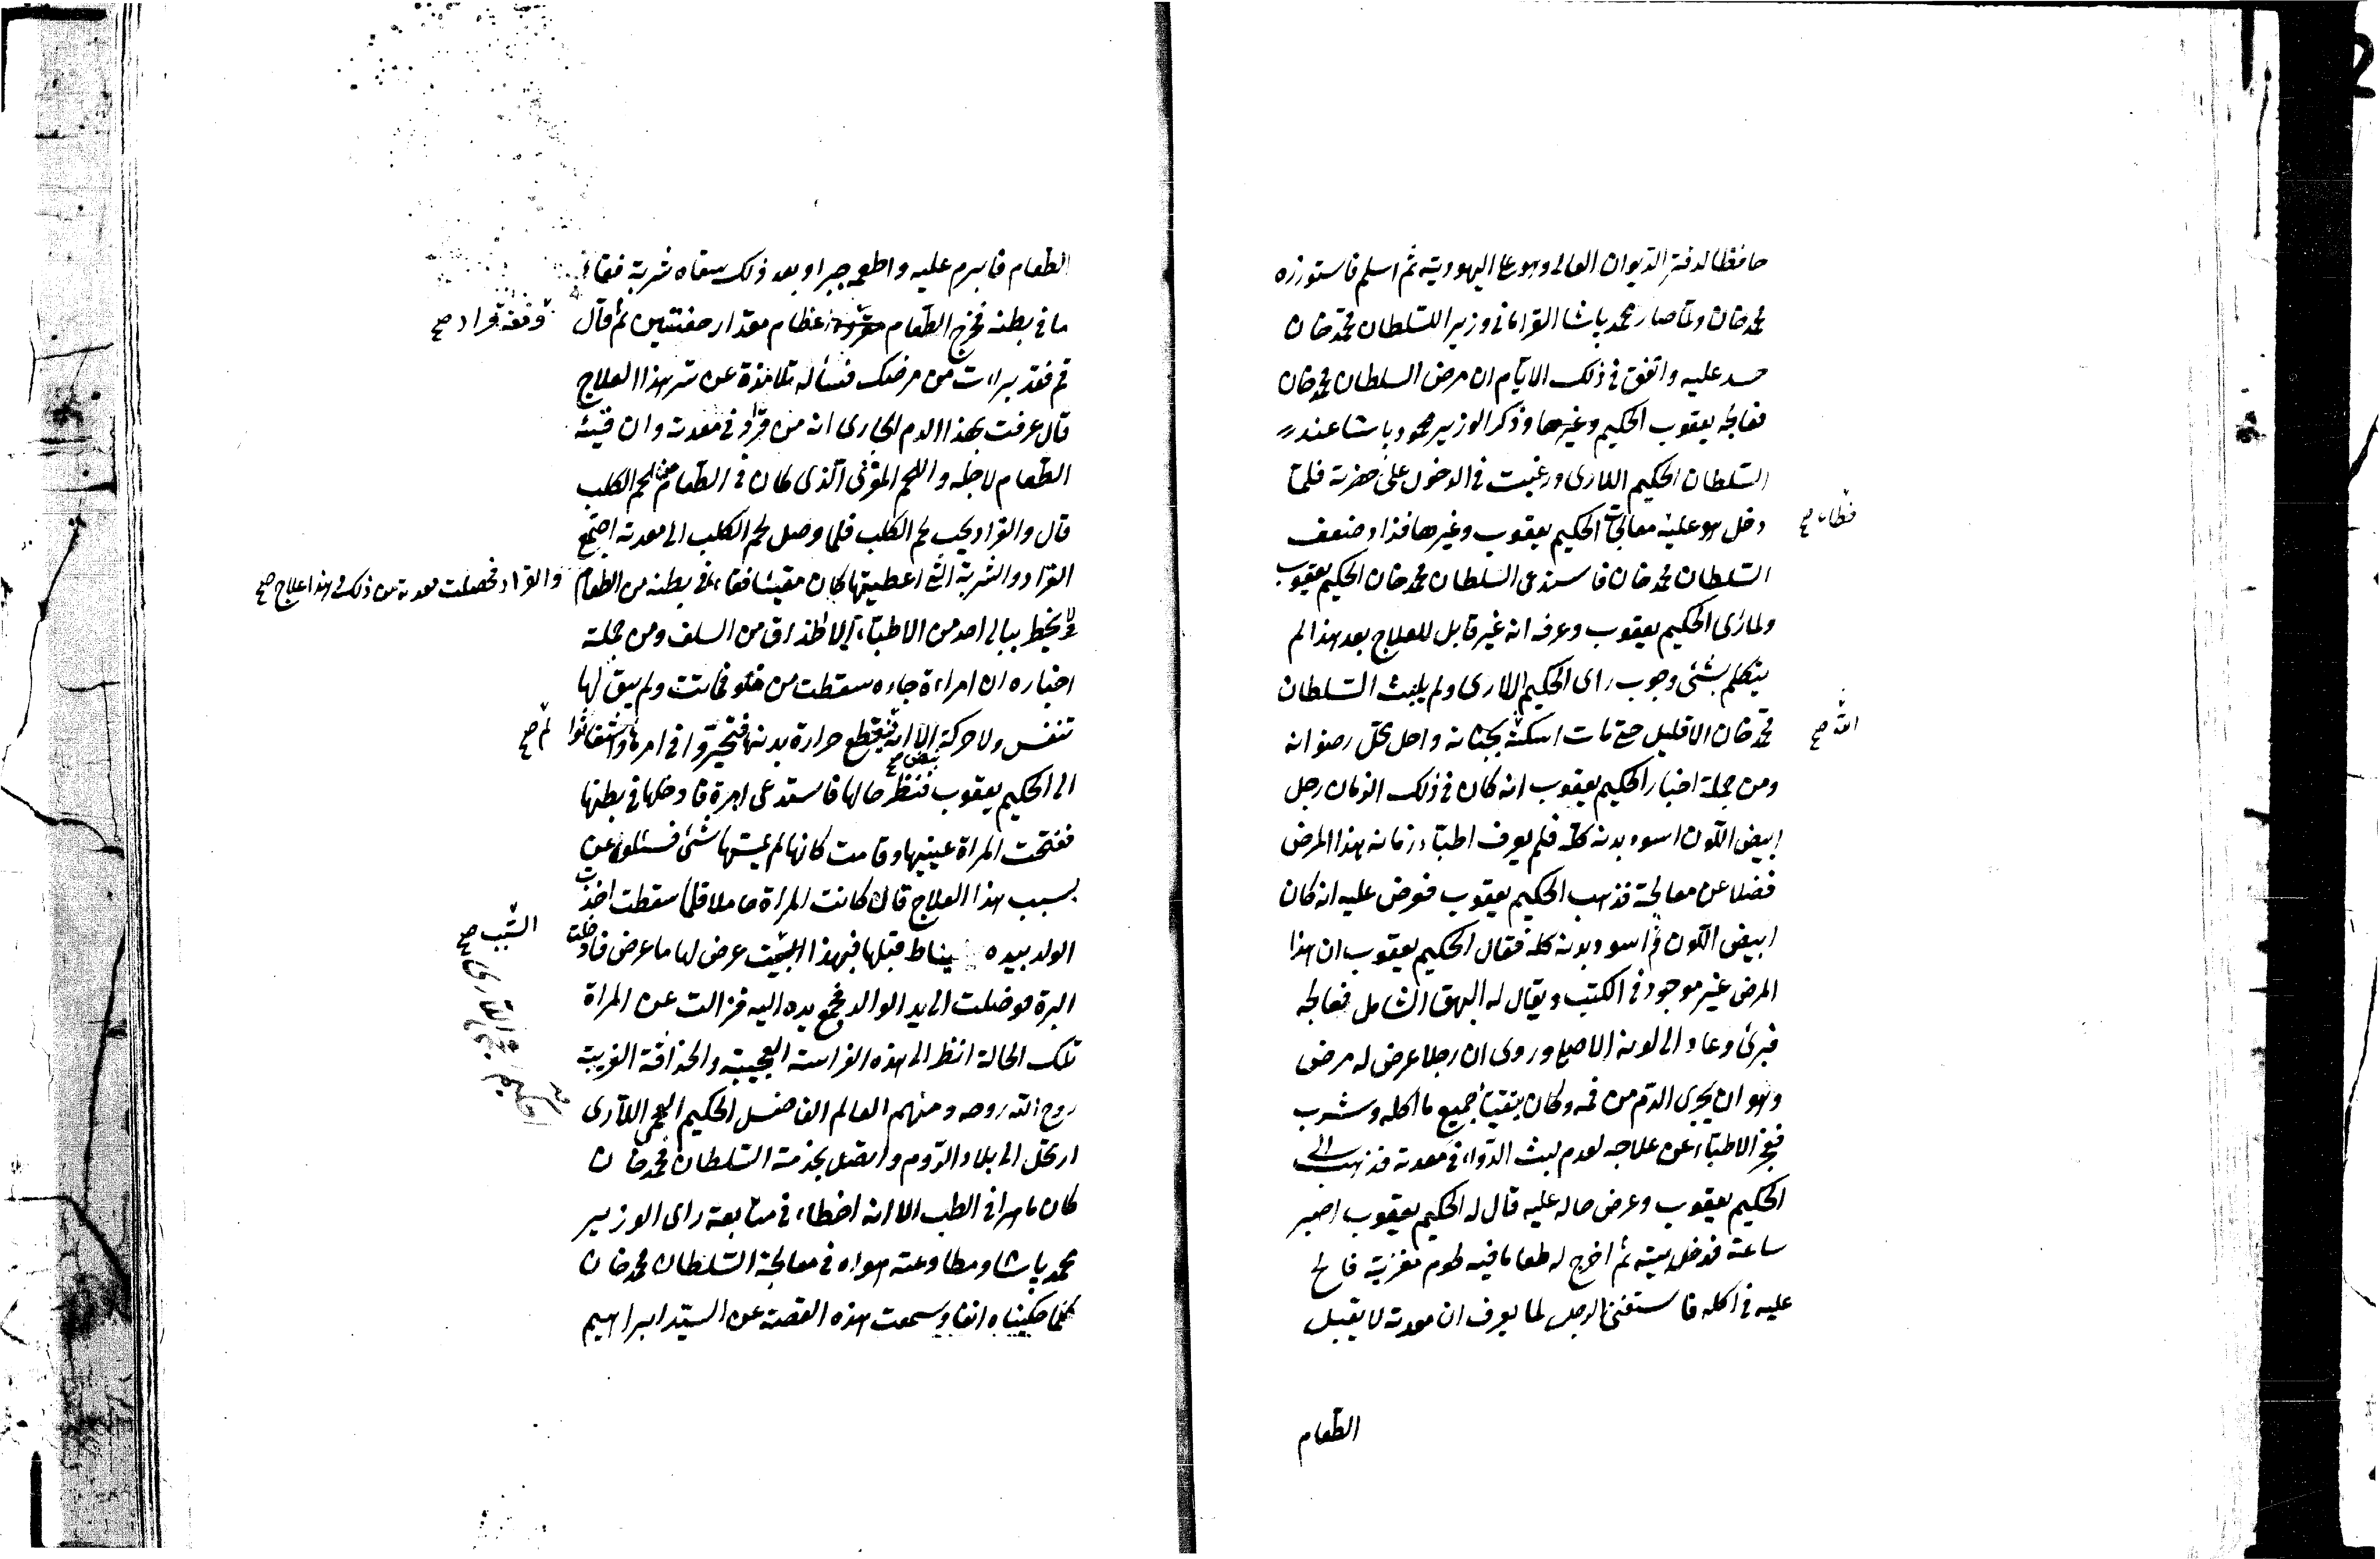 حافظا لدفتر الديوان العالى وهو على اليهودية ثم اسلم فاستوزره
محمد خان ولما صار محمد باشا القرامانى وزيرا للسلطان محمد خان
حسد عليه واتفق فى ذلك الايام ان مرض السلطان محمد خان
فعالجه يعقوب الحكيم وغيرها وذكر الوزير محمود باشا عند
السلطان الحكيم اللارى ورغبت فى الدخول على حضرته فلما
دخل هو عليه معالجات الحكيم يعقوب وغيرها فزاد ضعف
فخطاء صح
السلطان محمد خان فاستدعى السلطان محمد خان الحكيم يعقوب
ولما راى الحكيم يعقوب وعرف انه غير قابل للعلاج بعد هذا لم
يتكلم بشئ وجوب راى الحكيم اللارى ولم يلبث السلطان
محمد خان الا قليل حتى مات اسكنه بجنانه واحل محل رضوانه
الله صح
ومن جملة اخبار الحكيم يعقوب انه كان فى ذلك الزمان رجل
ابيض اللون اسود بدنه كله فلم يعرف اطباء زمانه هذا المرض
فضلا عن معالجة فذهب الحكيم يعقوب فعرض عليه انه كان
ابيض اللون ثم اسود بدنه كله فقال الحكيم يعقوب ان هذا
المرض غير موجود فى الكتب ويقال له البهق الشامل فعالجه
فبرئ وعاد الى لونه الاصلى وروى ان رجلا عرض له مرض
وهو ان يجرى الدم من فمه وكان يتقيأ جميع ما اكله وشرب
فعجز الاطباء عن علاجه لعدم لبث الدواء فى معدته فذهب الى
الحكيم يعقوب وعرض حاله عليه قال له الحكيم يعقوب اصبر
ساعة فدخل بيته ثم اخرج له طعاما فيه لحوم مغزية فالح
عليه فى اكله فاستغنى الرجل لما يعرف ان معدته لا يقبل
الطعام
الطعام فابرم عليه واطعمه جبرا وبعد ذلك سقاه شربة فقاء
ما فى بطنه فخرج الطعام عظام مقدار حفنتين ثم قال
قراد صح
قم فقد برات من مرضك فسأله تلامذة عن سر هذا العلاج
قال عرفت بهذا الدم الجارى انه من قراد فى معدته وان قيئه
الطعام لاجله واللحم المؤتى الذى كان فى الطعام لحم الكلب
قال والقراد يحب لحم الكلب فلما وصل لحم الكلب الى معدته اجتمع
القراد والشربة التى اعطيتها كان مقيئا فقاء ما فى بطنه من الطعام
والقراد فحصلت معدته من ذلك فى هذا علاج صح
لا يخطر ببالى احد من الاطباء الا الحذاق من السلف ومن جملة
اخباره ان امراءة جاره سقطت من علو فماتت ولم يبق لها
تنفس ولا حركة الا انه لم ينقطع حرارة بدنها فتحيروا فى امرها واستغاثوا
لم صح
الى الحكيم يعقوب فنظر حالها فاستدعى ابرة فادخلها فى بطنها
ففتحت المراة عينيها وقامت كانها لم يمسها شئ فسئلوه عن
بسبب هذا العلاج قال كانت المراة حاملا فلما سقطت اخذت
الولد بيده نياط قلبها فبهذا عرض لها ما عرض فادخلت
السبب صح
البرة فوصلت الى يد الولد فجمع يده اليه فزالت عن المراة
تلك الحالة انظر الى هذه الفراسة العجيبة والحذاقة الغريبة
روح الله روحه ومنهم العالم الفاضل الحكيم العجمى اللارى
حكيم عجمى اللارى
ارتحل الى بلاد الروم واتصل بخدمة السلطان محمد خان
كان ماهرا فى الطب الا انه اخطاء فى متابعة راى الوزير
محمد باشا ومطاوعته هواه فى معالجة السلطان محمد خان
كما حكيناه انفا وسمعت هذه القصة عن السيد ابراهيم